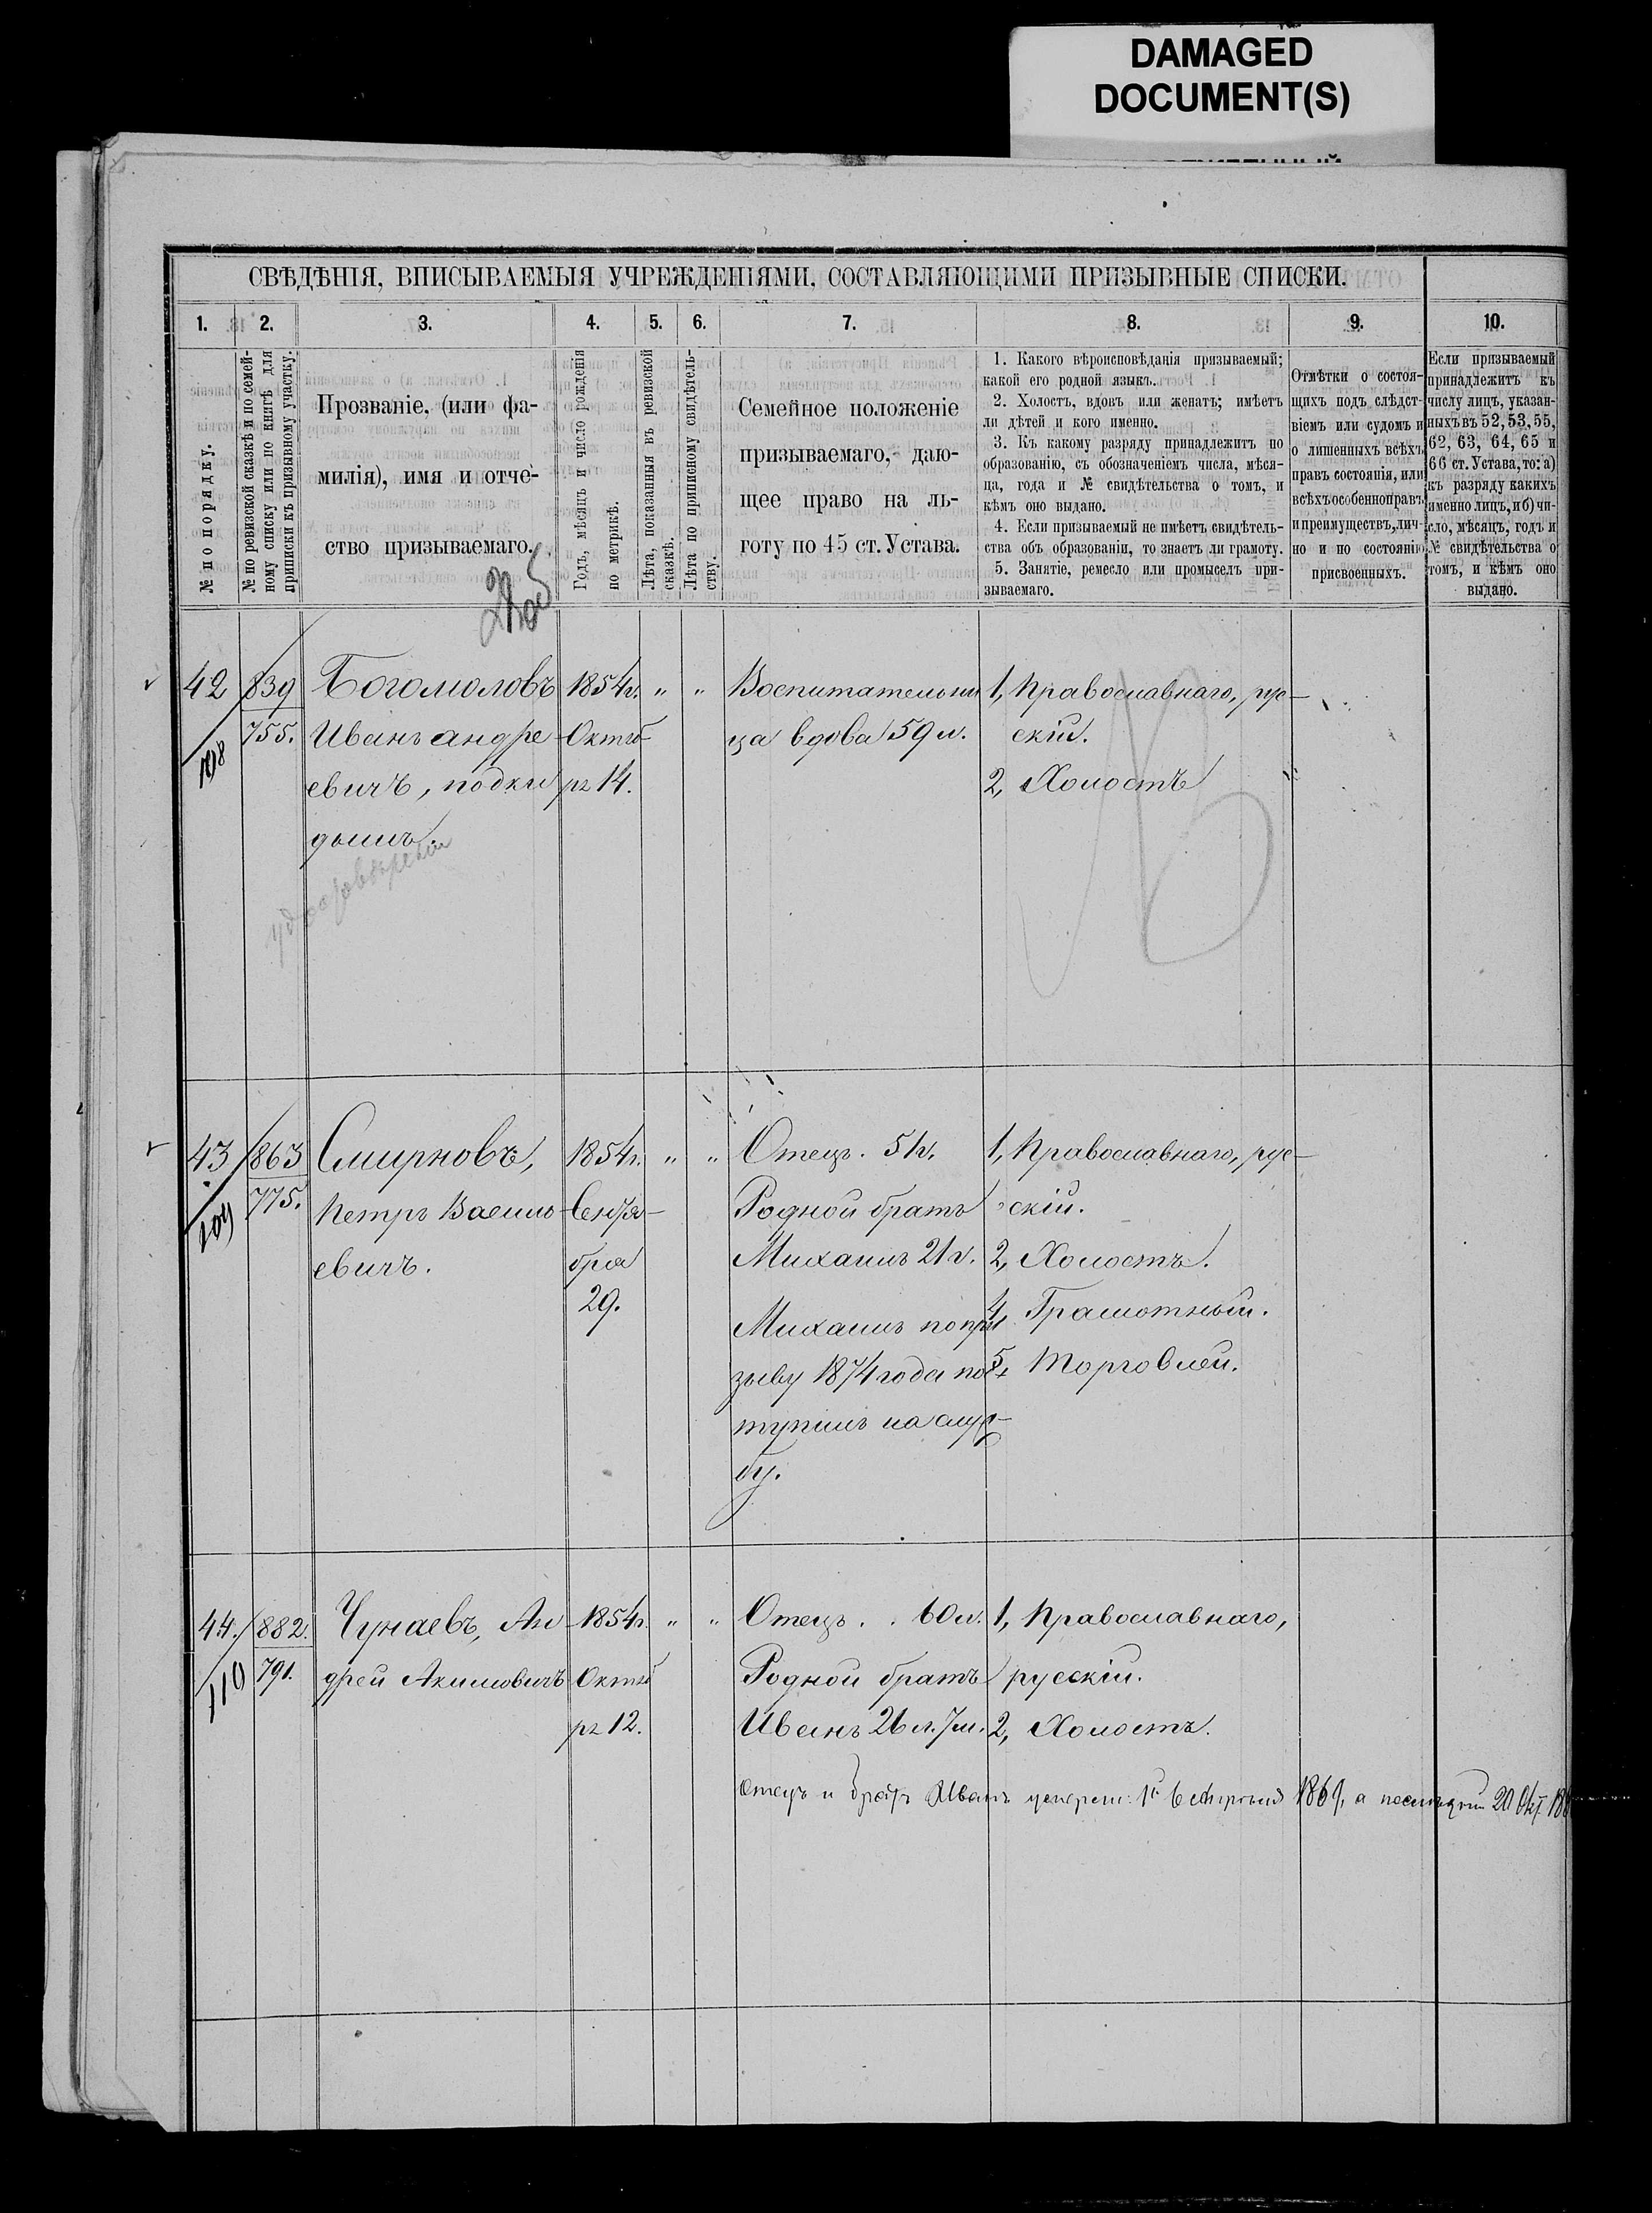 DAMAGED
DOCUMENT(S)
СВѢДѢНІЯ, ВПИСЫВАЕМЫЯ УЧРЕЖДЕНІЯМИ, СОСТАВЛЯЮЩИМИ ПРИЗЫВНЫЕ СПИСКИ.
1. 2. 3. 4. 5. 6. 7. 8. 9. 10.
№ по порядку.
№ по ревизской сказкѣ и по семей-
ному списку или по книгѣ для
приписки къ призывному участку.
Прозваніе, (или фа-
милія), имя и отче-
ство призываемаго.
Годъ, мѣсяцъ и число рожденія
по метрикѣ.
Лѣта, показанныя въ ревизской
сказкѣ.
Лѣта по приписному свидѣтель-
ству.
Семейное положеніе
призываемаго, даю-
щее право на ль-
готу по 45 ст. Устава.
1. Какого вѣроисповѣданія призываемый;
какой его родной языкъ.
2. Холостъ, вдовъ или женатъ; имѣетъ
ли дѣтей и кого именно.
3. Къ какому разряду принадлежитъ по
образованію, съ обозначеніемъ числа, мѣся-
ца, года и № свидѣтельства о томъ, и
кѣмъ оно выдано.
4. Если призываемый не имѣетъ свидѣтель-
ства объ образованіи, то знаетъ ли грамоту.
5. Занятіе, ремесло или промыселъ при-
зываемаго.
Отмѣтки о состоя-
щихъ подъ слѣдст-
віемъ или судомъ и
о лишенныхъ всѣхъ
правъ состоянія, или
всѣхъ особенно правъ
и преимуществъ, лич-
но и по состоянію
присвоенныхъ.
Если призываемый
принадлежитъ къ
числу лицъ, указан-
ныхъ въ 52, 53, 55,
62, 63, 64, 65 и
66 ст. Устава, то: а)
къ разряду какихъ
именно лицъ, и б) чи-
сло, мѣсяцъ, годъ и
№ свидѣтельства о
томъ, и кѣмъ оно
выдано.
42
108
839
755.
Богомоловъ
Иванъ андре
евичъ, подки
дышъ.
1854г.
Октяб
ря 14.
" "
Воспитательни
ца вдова 59 л.
1, Православнаго, рус-
скій.
2, Холостъ
43
109
863
775.
Смирновъ,
Петръ Василь-
евичъ.
1854г.
Сентя-
бря
29.
" "
Отецъ. 51г.
Родной братъ
Михаилъ 21 г.
Михаилъ по при
зыву 1874 года пос
тупилъ на служ-
бу.
1, Православнаго, рус-
скій.
2, Холостъ.
4, Грамотный.
5, Торговлей.
44.
110
882.
791.
Чунаевъ, Ан-
дрей Акимовичъ
1854г.
Октяб
ря 12.
" "
Отецъ . . 60 л.
Родной братъ
Иванъ 26 л. 7 м.
1, Православнаго,
русскій.
2, Холостъ.
Отецъ и братъ Иванъ умерли: 1й 6 Апрѣля 1869, а послѣдній 20 Окт.